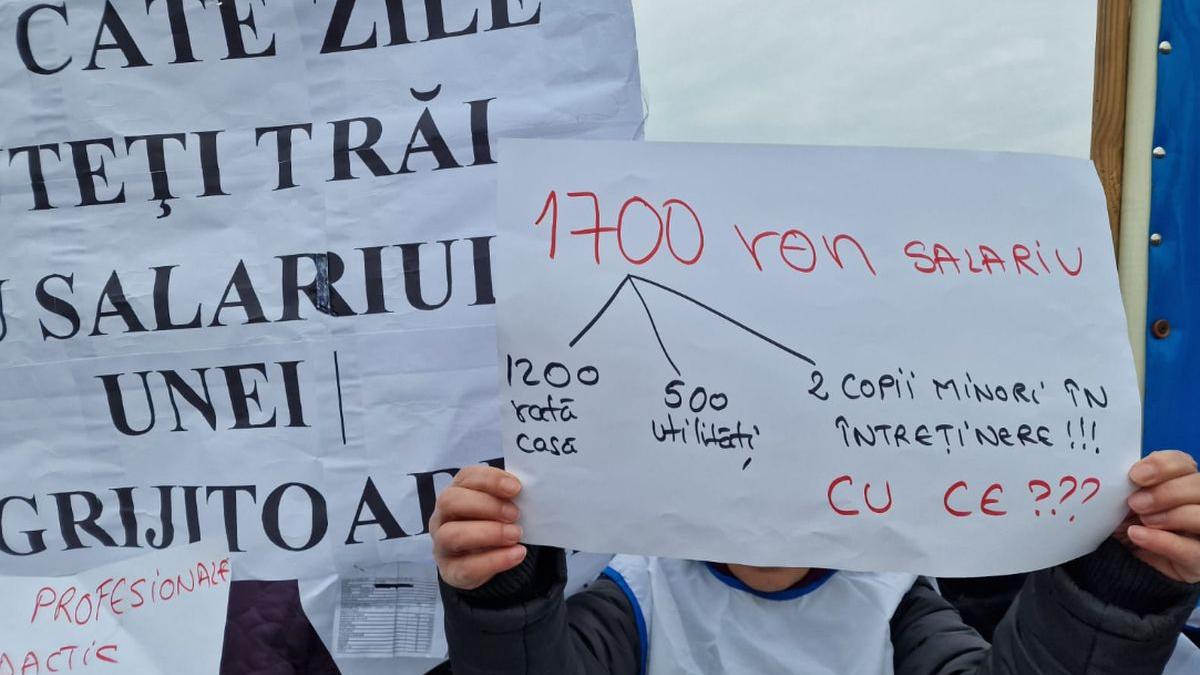 CATE ZILE
TEȚI TRĂI
SALARIUL
UNEI
GRIJITOARE
PROFESIONALE
DACTIC
1700 ron SALARIU
1200
rată
casa
500
utilități
2 COPII MINORI ÎN
ÎNTREȚINERE !!!
CU CE ???